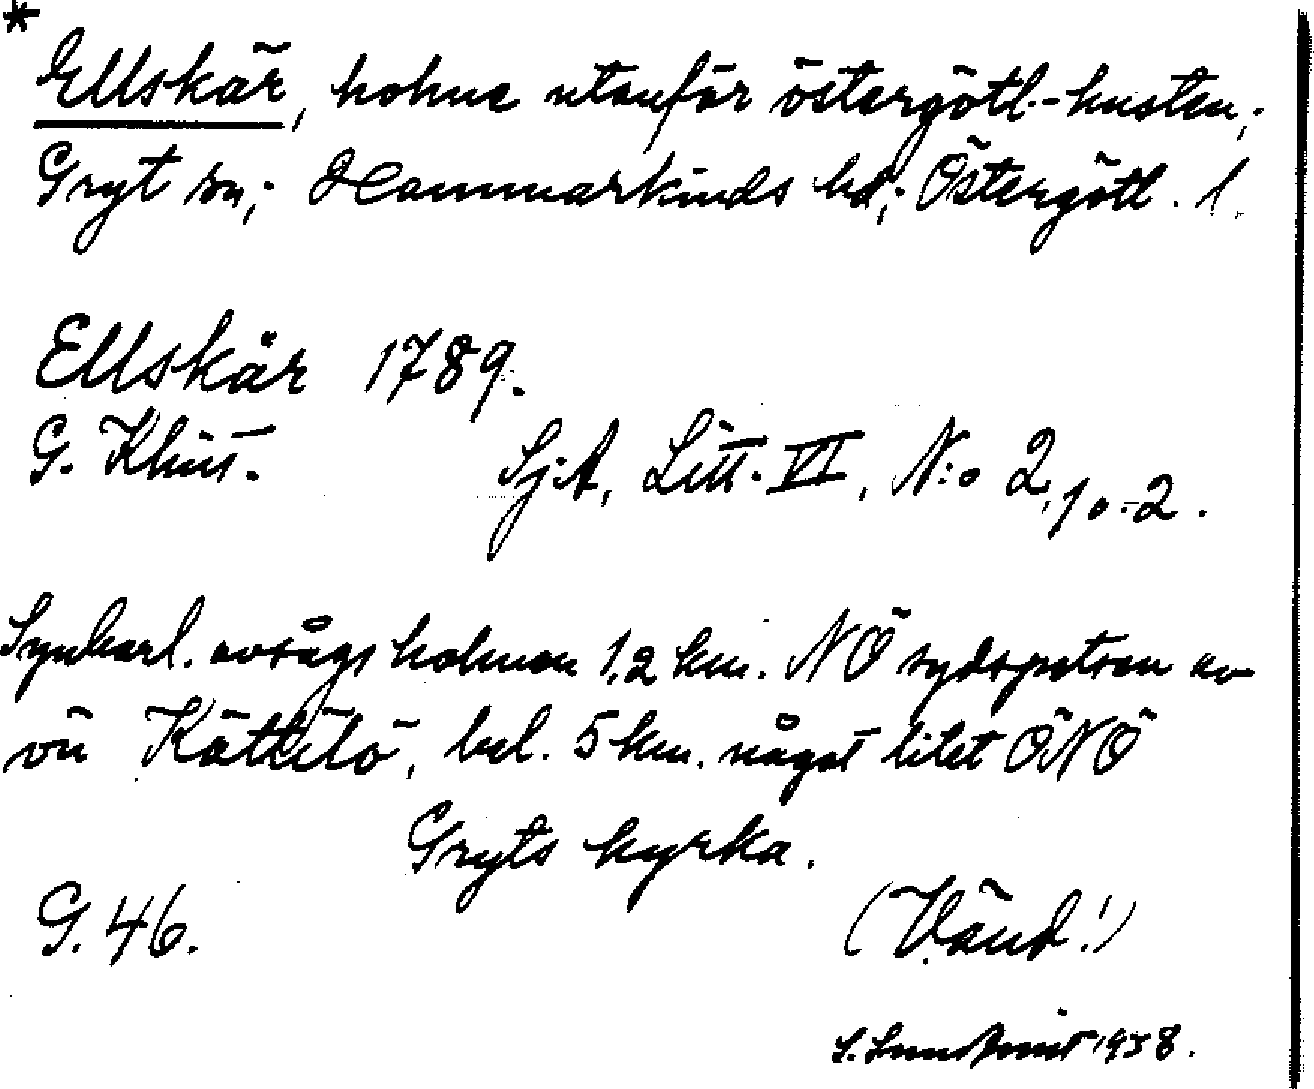 *
Ellskär, holme utanför östergötl.-kusten;
Gryt sn; Hammarkinds hd; Östergötl. l.
Ellskär 1789.
G. Klint.
Sj.A, Litt. VI, N:o 2,10-2.
Synbarl. avsågs holmen 1,2 km. NÖ sydspetsen av
ön Kättilö, bel. 5 km. något litet ÖNÖ
Gryts kyrka.
G. 46.
(Vänd!)
S. 1938.